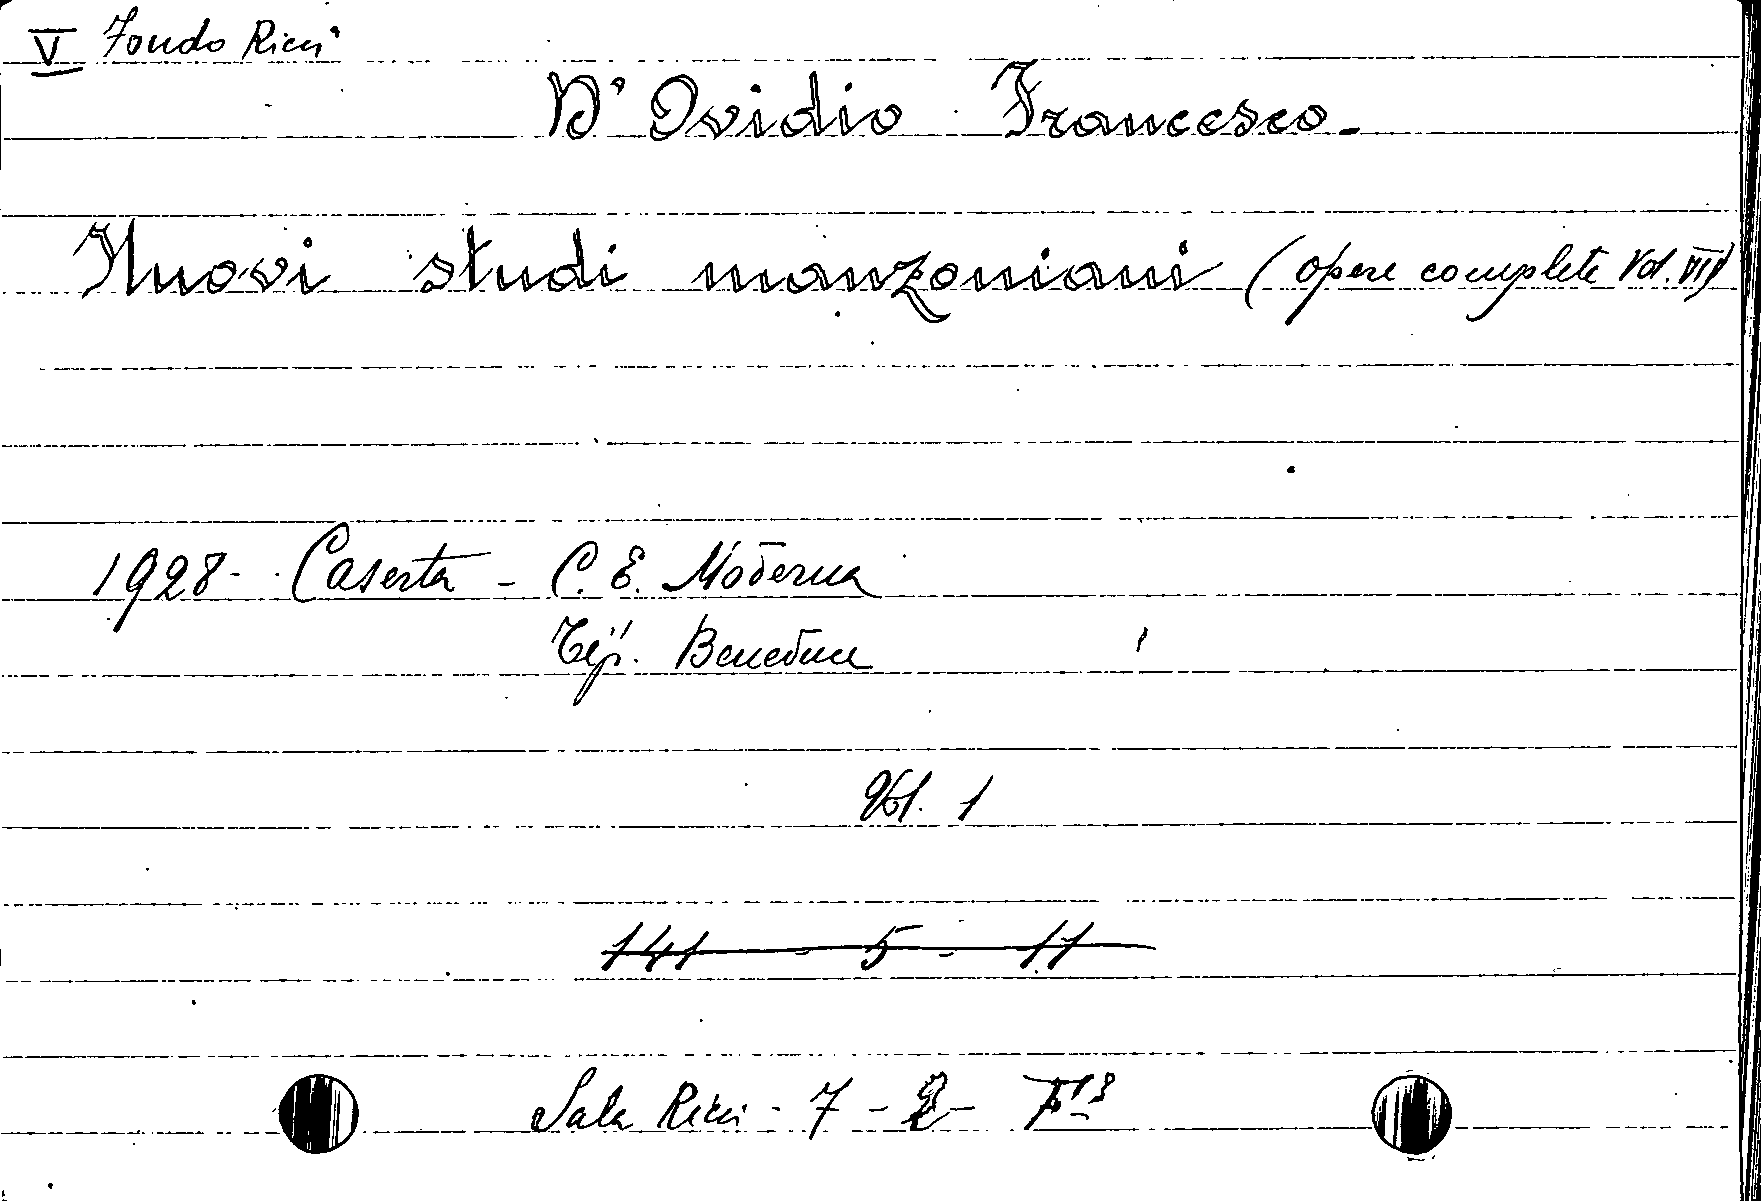 V Fondo Ricci
D'Ovidio Francesco.
Nuovi studi manzoniani (opere complete Vol. VIII)
1928 - Caserta - C. E. Moderna
Tip. Beneduce
Vol. 1
141 - 5 - 11
Sala Ricci - 7 - 2 -